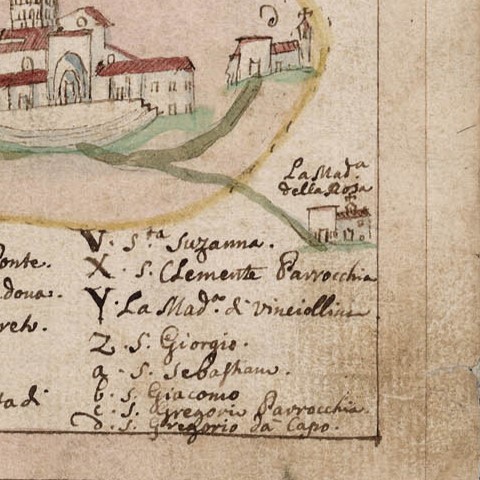 d
La Mad.a
della Rosa
V. S.ta Suzanna.
onte.
X. S. Clemente Parrocchia
doua.
Y. La Mad.a di
Z. S. Giorgio.
a. S. Sebastiano.
ta di
b. S. Giacomo
c. S. Gregorio Parrocchia.
d. S. Gregorio da Capo.